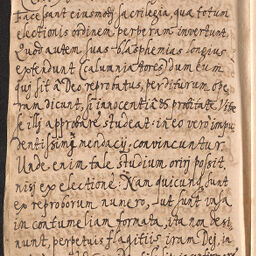 facessant eiusmodi sacrilegia, quæ totum
electionis ordinem perperam invertunt.
Quod autem suas blasphemias longius
extendunt (calumniatores) dum eum
qui sit a Deo reprobatus, perditurum ope-
ram dicunt, si innocentia et probitate Vitæ
se illi approbare studeat: in eo vero impu-
dentissimi mendacij, convincuntur.
Unde enim tale studium oriri possit
nisi ex electione: Nam quicunq; sunt
ex reproborum numero, sut sunt vasa
in contumeliam formata, ita non desi-
nunt, perpetuis flagitiis iram Dei, in